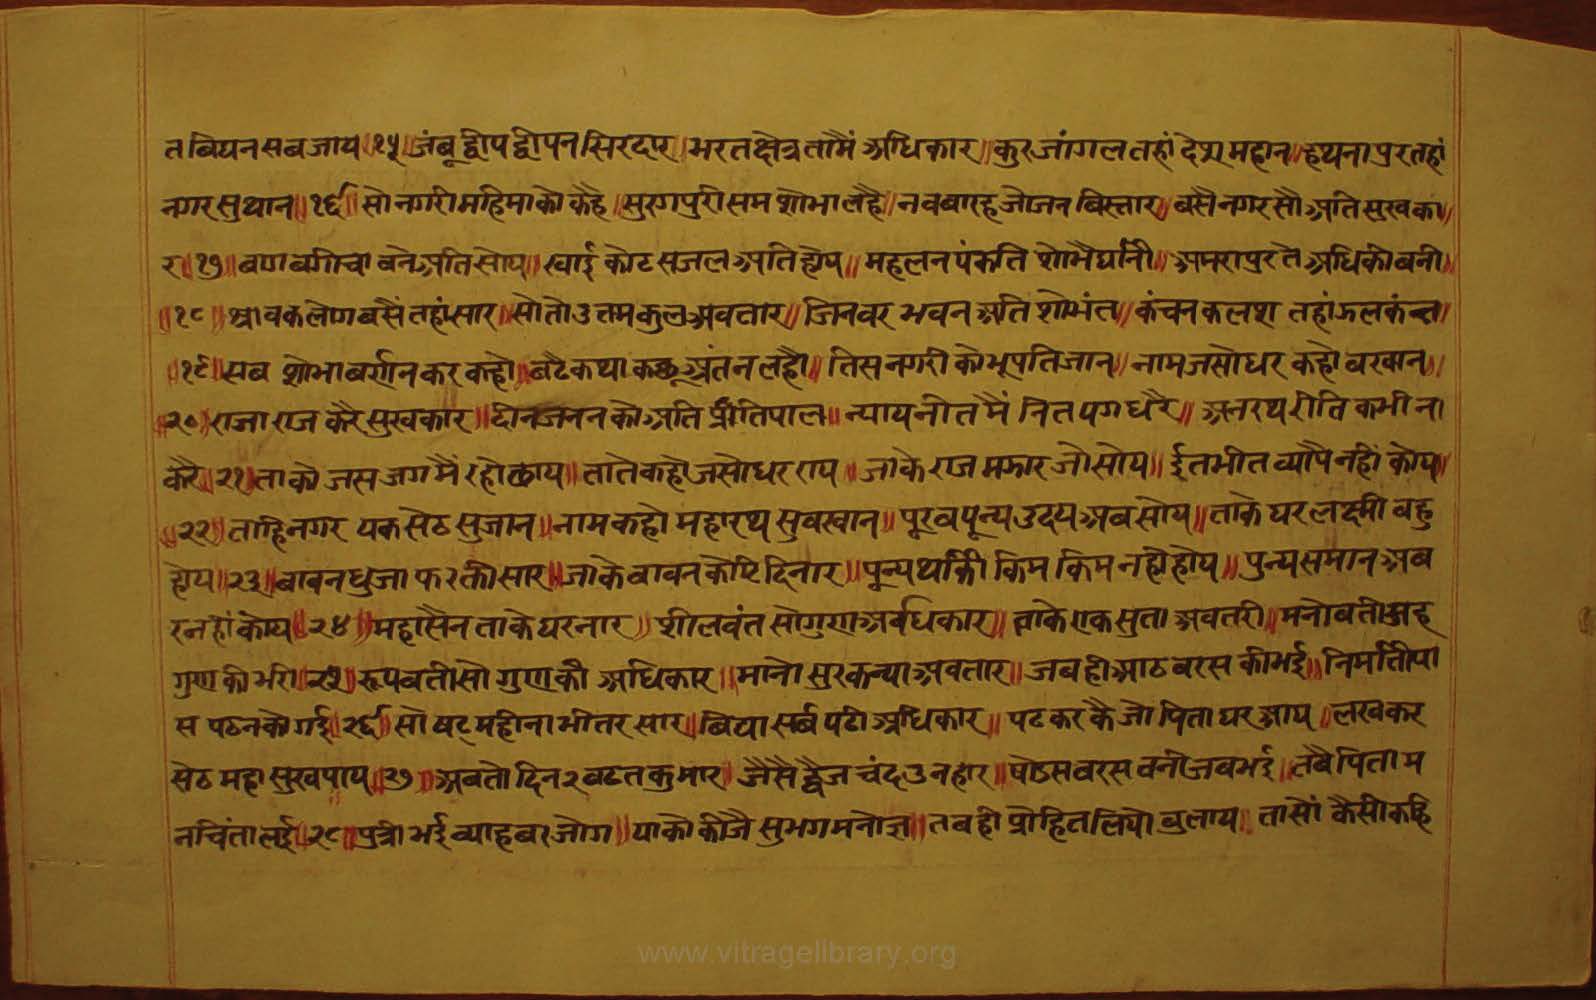 त बिघन सब जाय॥१५॥जंबूद्वीप द्वीपन सिरदार॥भरतक्षेत्र तामैं अधिकार॥कुरजांगल तहां देश महान॥हथनापुर तहां
नगर सुथान॥१६॥सो नगरी महिमा को कहै॥सुरगपुरी सम शोभा लहै॥नव बारह जोजन बिस्तार॥बसै नगर सौ अति सुखका॥
र॥१७॥बाग बगीचा बने अति सोय॥खाई कोट सजल अति होय॥महलन पंकति शोभै घनी॥अमरापुर तै अधिकी बनी॥
॥१८॥श्रावक लोग बसैं तहां सार॥सौ तो उत्तम कुल अवतार॥जिनवर भवन अति शोभंत॥कंचन कलश तहां झलकंन्त॥
॥१९॥सब शोभा बर्णन कर कहो॥बढै कथा कछू अंत न लहो॥तिस नगरी को भूपति जान॥नाम जसोधर कहो बखान॥
॥२०॥राजा राज करै सुखकार॥दीन जनन को अति प्रीतिपाल॥न्याय नीत मैं नित पग धरै॥अनरथ रीति कभी ना
करै॥२१॥ताको जस जग मैं रहो छाय॥तातै कहो जसोधर राय॥जाके राज मझार जो सोय॥ईत भीत व्यापै नहीं कोय॥
॥२२॥ताहि नगर यक सेठ सुजान॥नाम कहो महारथ सुबखान॥पूरव पून्य उदय अब सोय॥ताके घर लक्ष्मी बहु
होय॥२३॥बावन धुजा फरक्ती सार॥जाके बावन कोटि दिनार॥पून्य थकी किम किम नही होय॥पुन्य समान अब
र नहीं कोय॥२४॥महासैन ताके घर नार॥शीलवंत सो गुण अधिकार॥ताके एक सुता अवतरी॥मनोवती बहु
गुण की भरी॥२५॥रूपवती सो गुण की अधिकार॥मानो सुरकन्या अवतार॥जब ही आठ बरस की भई॥निर्मति पा
स पठन को गई॥२६॥सो षट् महीना भीतर सार॥बिद्या सर्ब पढी अधिकार॥पढ कर कै जो पिता घर आय॥लख कर
सेठ महा सुख पाय॥२७॥अब तो दिन २ बढत कुमार॥जैसै द्वैज चंद उनहार॥षोडस बरस बनी जब भई॥तबै पिता म
न चिंता लई॥२८॥पुत्री भई ब्याहबा जोग॥याको कीजै सुभग मनोज्ञ॥तब ही प्रोहित लियो बुलाय॥तासों कैसी कहि
www.vitragelibrary.org